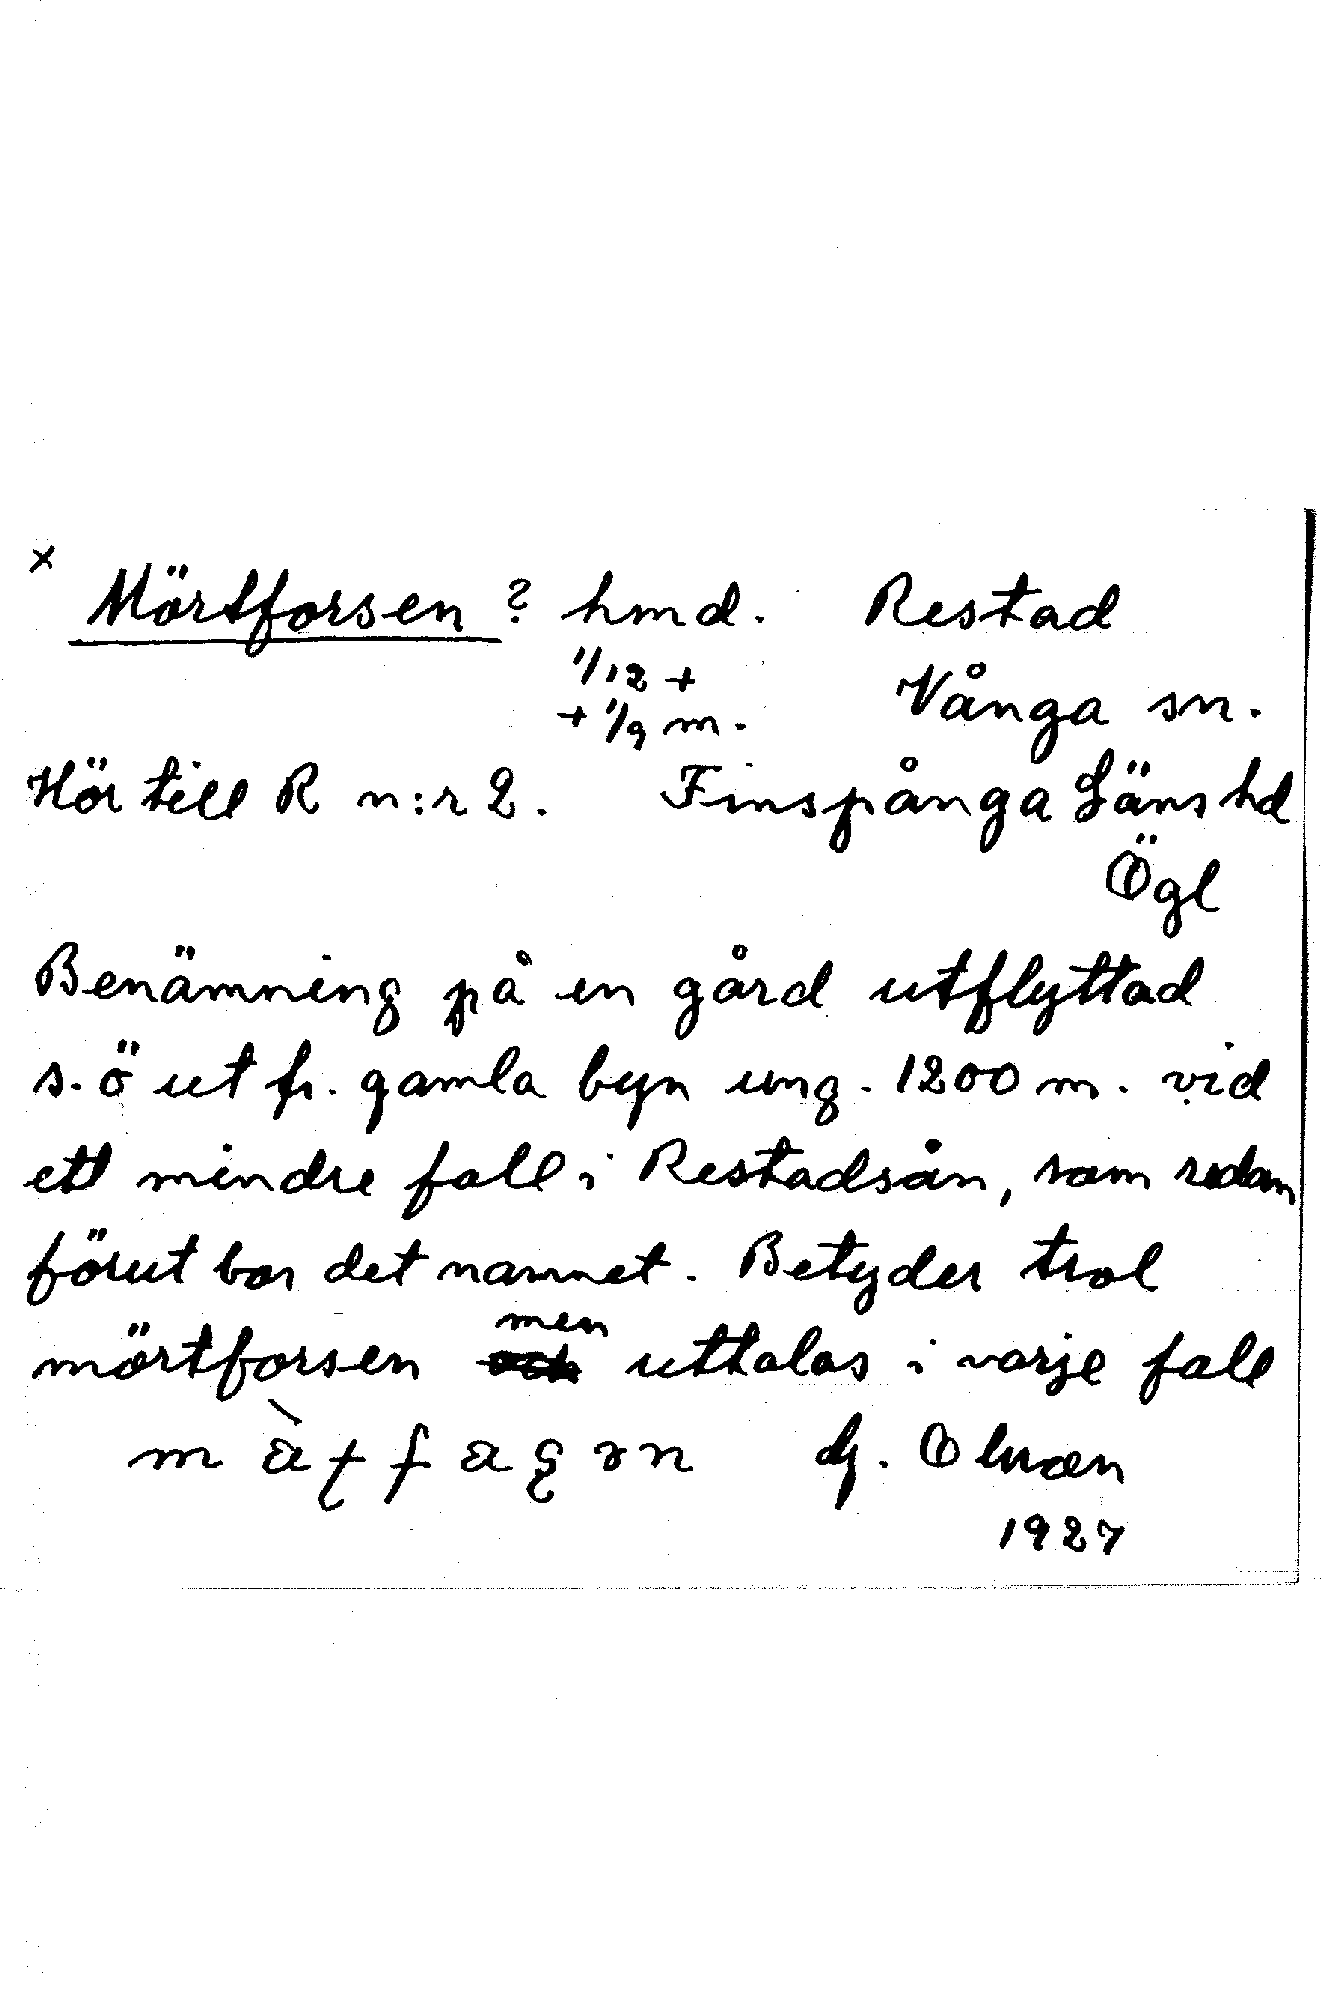 x
Mörtforsen ? hmd. Restad
1/12 +
+ 1/9 m. Vånga sn.
Hör till R n:r 2. Finspånga Läns hd
Ögl
Benämning på en gård utflyttad
s. ö ut fr. gamla byn ung. 1200 m. vid
ett mindre fall i Restadsån, som redan
förut bar det namnet. Betyder trol
men
mörtforsen och uttalas i varje fall
dj.
1927